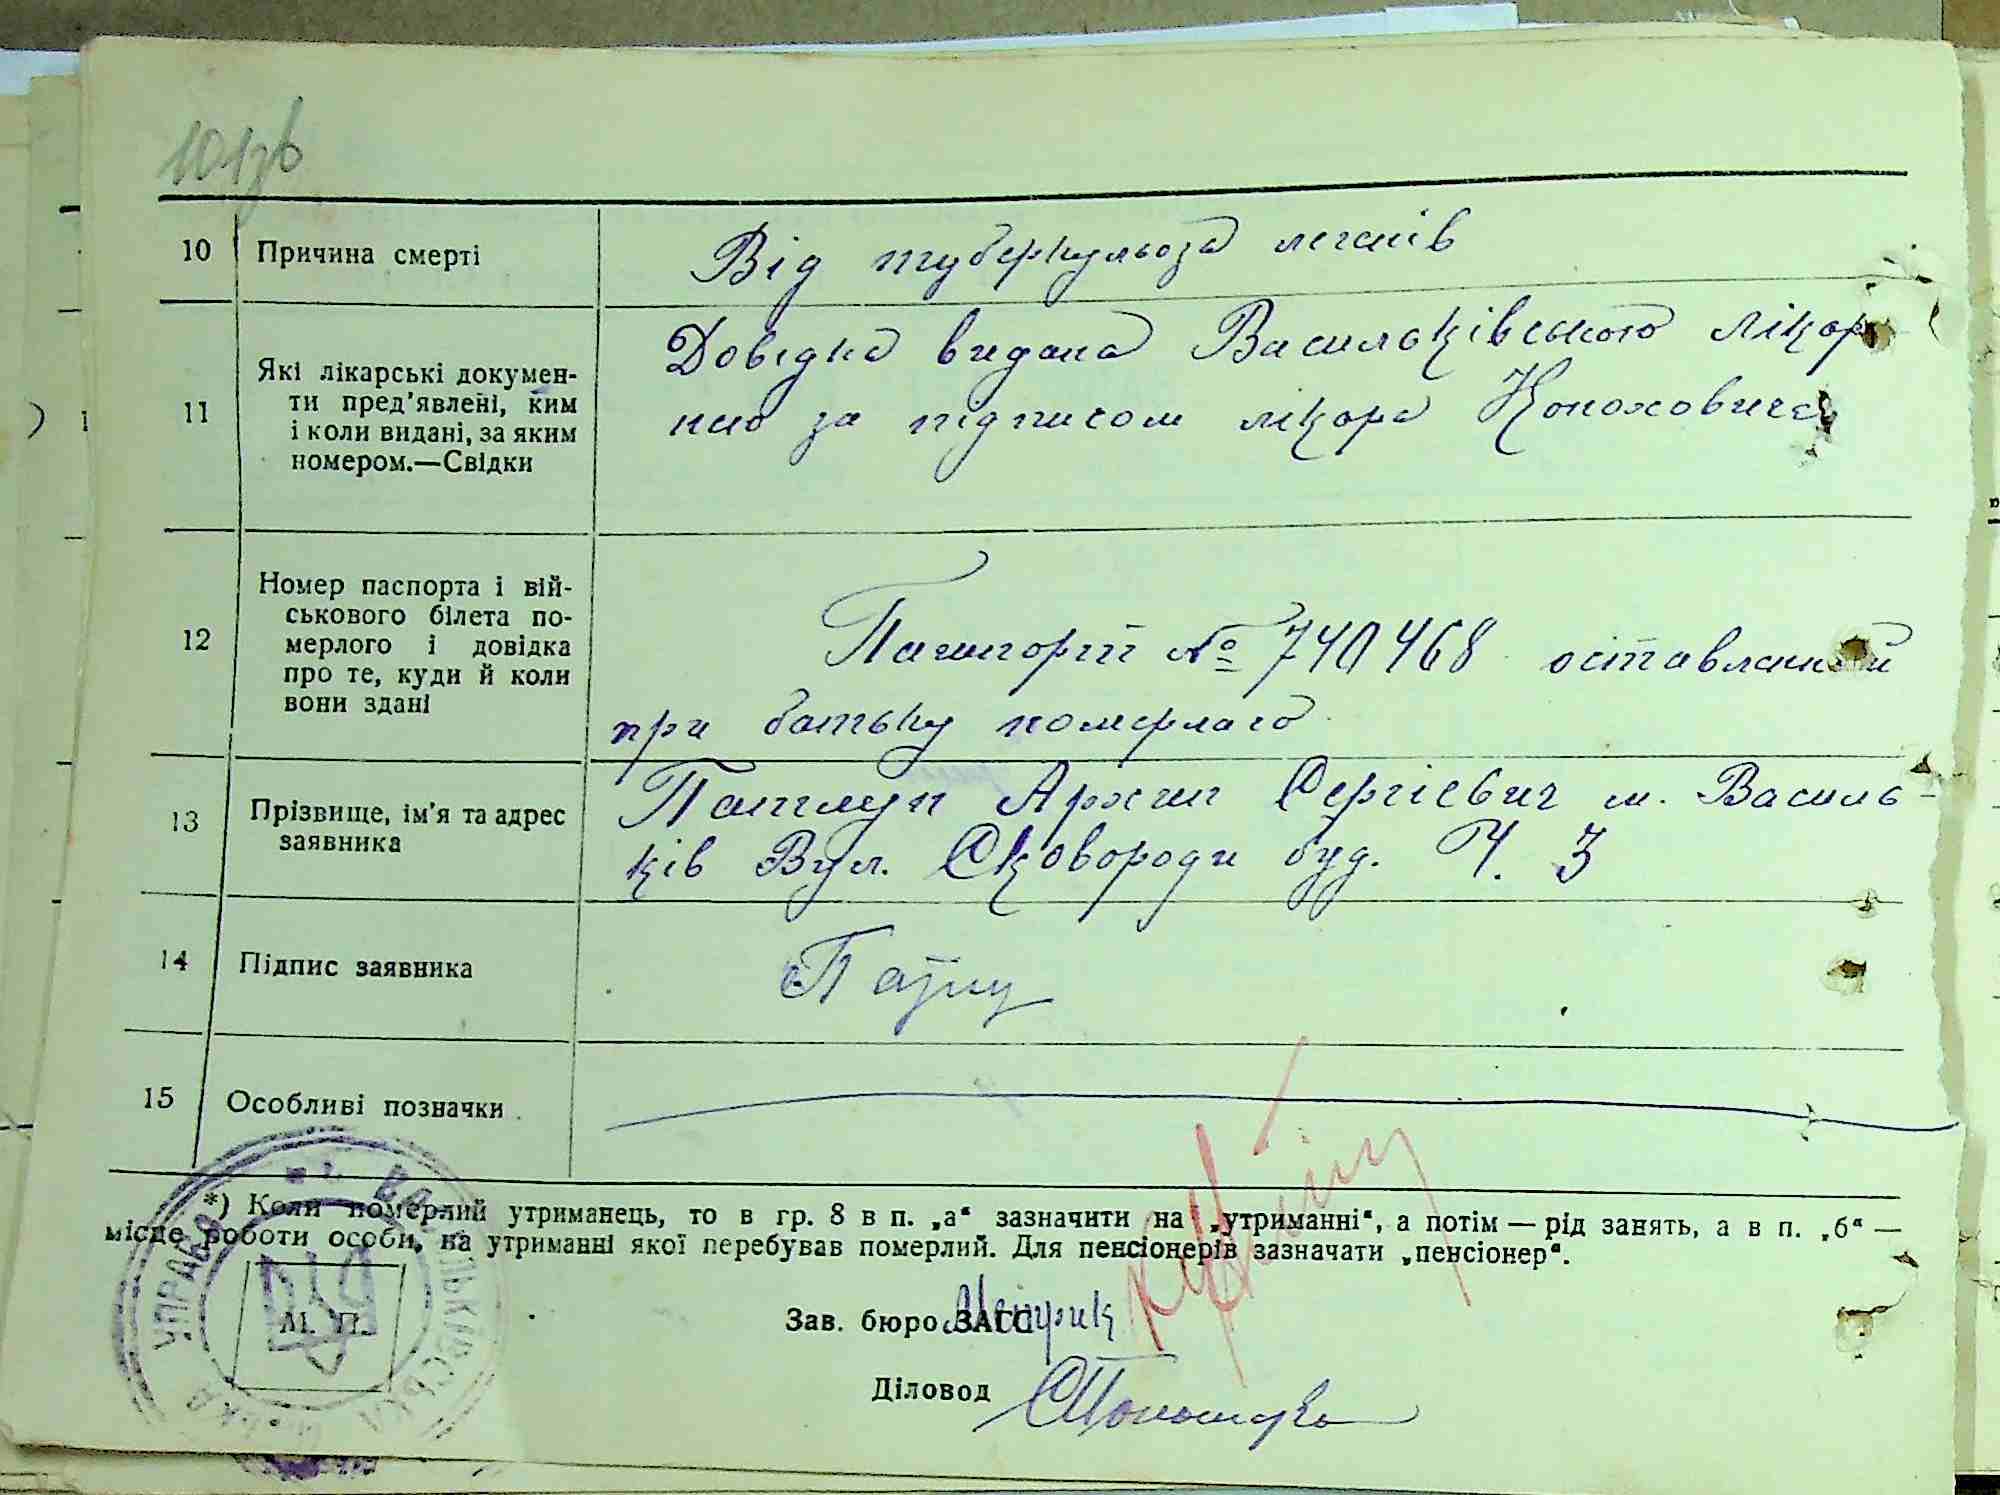 101зв
10 Причина смерті
Від туберкульоза легенів
11 Які лікарські докумен-
ти пред'явлені, ким
і коли видані, за яким
номером.—Свідки
Довідка видана Васильківською Лікар
нею за підписом лікара Кононовича
12 Номер паспорта і вій-
ськового білета по-
мерлого і довідка
про те, куди й коли
вони здані
Пашпорт № 740468 оставлений
при батьку померлаго
13 Прізвище, ім'я та адрес
заявника
Архип Сергієвич м. Василь-
ків Вул. Сковороди буд. Ч. 3
14 Підпис заявника
15 Особливі позначки
*) Коли померлий утриманець, то в гр. 8 в п. „а“ зазначити на „утриманні“, а потім — рід занять, а в п. „б“ —
місце роботи особи, на утриманні якої перебував померлий. Для пенсіонерів зазначати „пенсіонер“.
М. П.
Зав. бюро ЗАГС
Діловод
УПРАВА
ВАСИЛЬКІВСЬКА